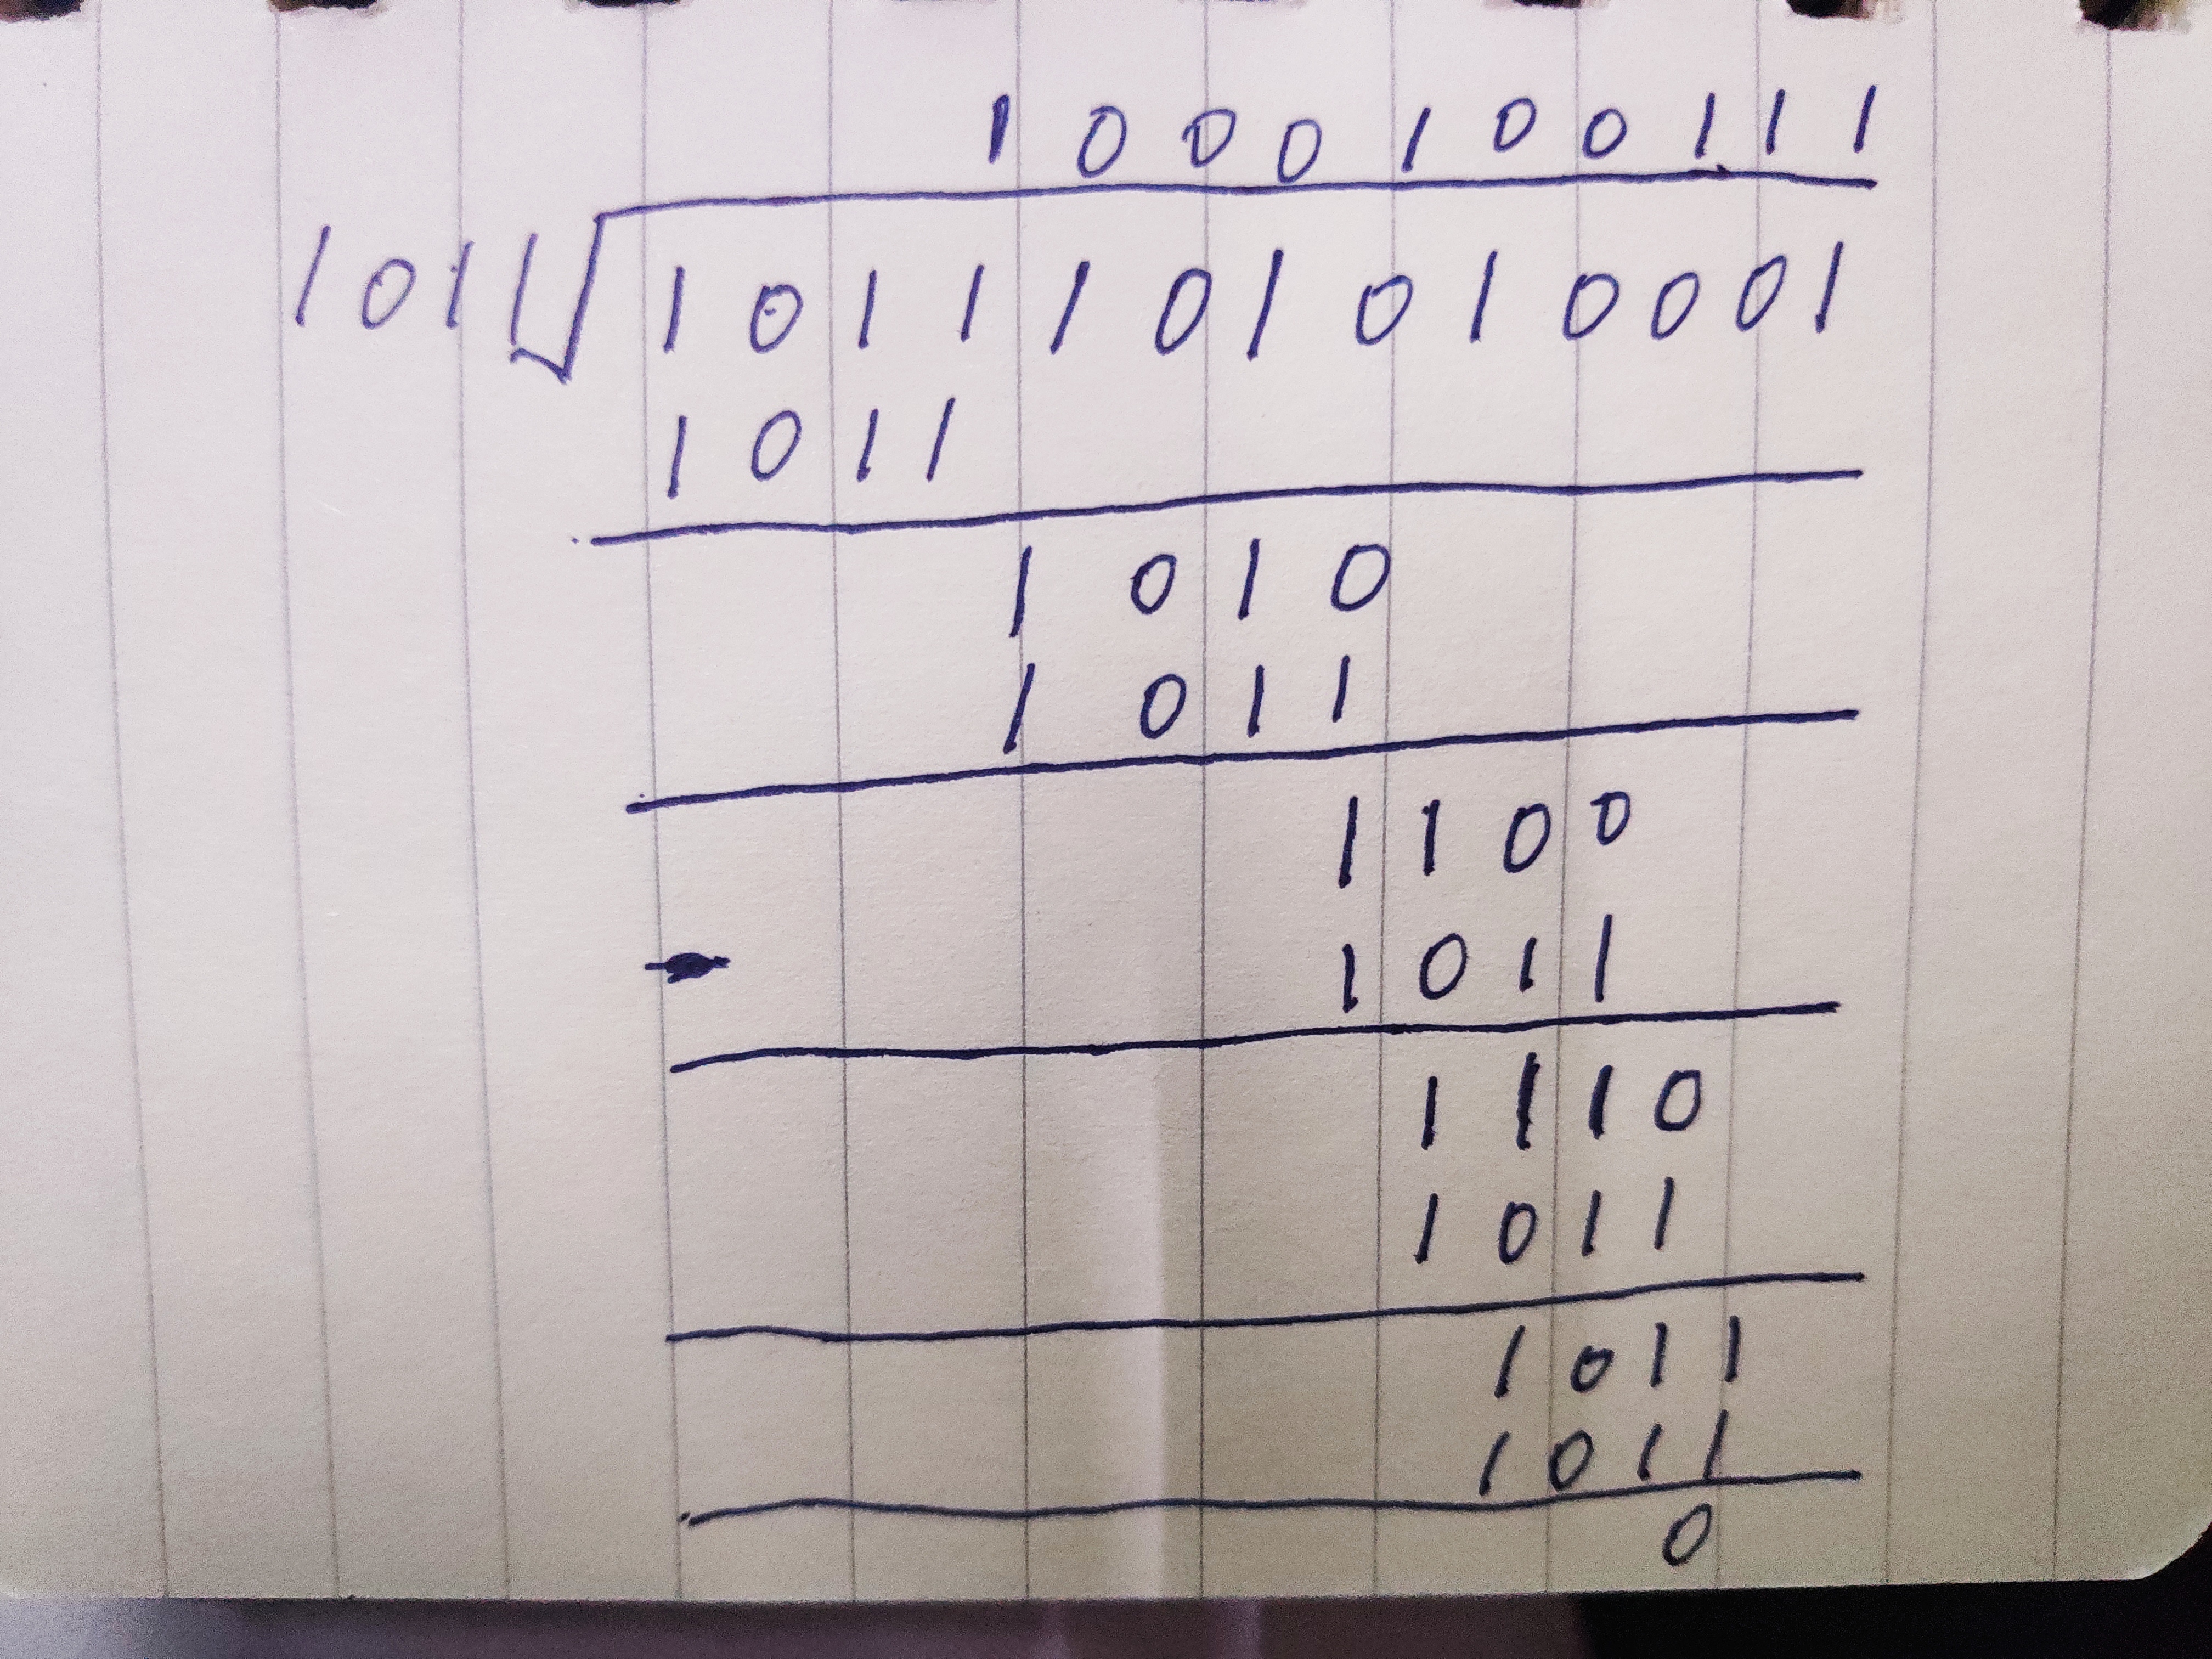 1000100111
1011√1011101010001
1011
1010
1011
1100
- 1011
1110
1011
1011
1011
0